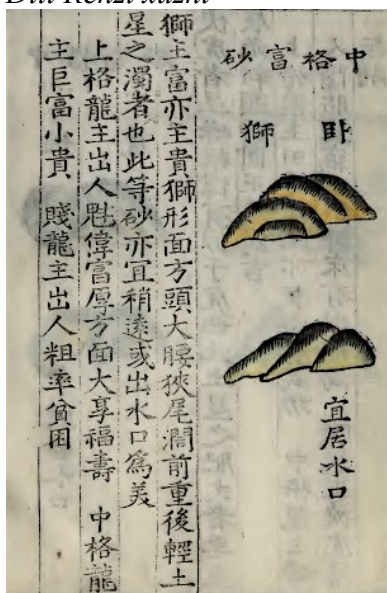 Dili Renzi xuzhi
中格富砂
卧獅
宜居水口
獅主富亦主貴獅形面方頭大腰狹尾濶前重後輕土
星之濁者也此等砂亦宜稍遠或出水口爲美
上格龍主出人魁偉富厚方面大享福壽 中格龍
主巨富小貴 賤龍主出人粗率貧困